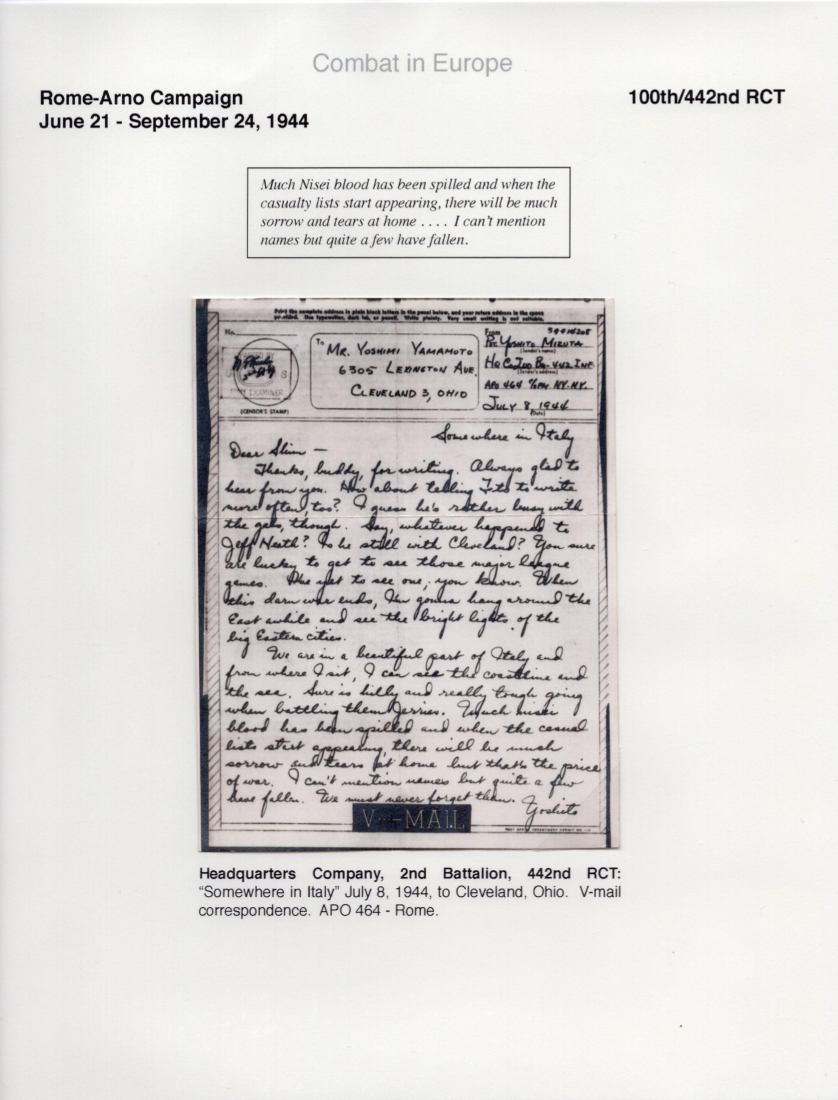 Combat in Europe
Rome-Arno Campaign
100th/442nd RCT
June 21 - September 24, 1944
Much Nisei blood has been spilled and when the
casualty lists start appearing, there will be much
sorrow and tears at home . . . . I can't mention
names but quite a few have fallen.
Print the complete address in plain block letters in the panel below, and your return address in the space
provided. Use typewriter, dark ink, or pencil. Write plainly. Very small writing is not suitable.
No.
(CENSOR'S STAMP)
To
MR. YOSHIMI YAMAMOTO
6305 LEXINGTON AVE.
CLEVELAND 3, OHIO
From
PFC YOSHITO MIZUTA
(Sender's name)
HQ CO 2ND BN-442 INF
(Sender's address)
APO 464 %PM NY. NY.
JULY 8, 1944
(Date)
Somewhere in Italy
Dear Slim —
Thanks, buddy, for writing. Always glad to
hear from you. How about telling to write
more often, too? I guess he's rather busy with
the gals, though. Say, whatever happened to
Jeff Heath? Is he still with Cleveland? You sure
are lucky to get to see those major league
games. I've yet to see one, you know. When
this darn war ends, I'm gonna hang around the
East awhile and see the bright lights of the
big Eastern cities.
We are in a beautiful part of Italy and
from where I sit, I can see the coastline and
the sea. Sure is hilly and really tough going
when battling them Jerries. Much nisei
blood has been spilled and when the casual
lists start appearing, there will be much
sorrow and tears at home but that's the price
of war. I can't mention names but quite a few
have fallen. We must never forget them.
Yoshito
V···—MAIL
Headquarters Company, 2nd Battalion, 442nd RCT:
"Somewhere in Italy" July 8, 1944, to Cleveland, Ohio. V-mail
correspondence. APO 464 - Rome.